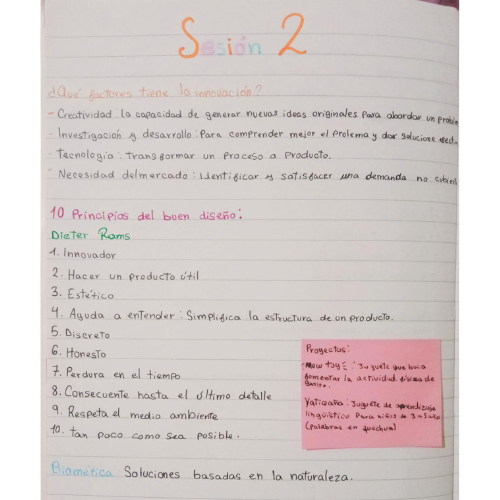 Sesión 2
¿Qué factores tiene la innovación?
- Creatividad: la capacidad de generar nuevas ideas originales para abordar un
- Investigación y desarrollo: Para comprender mejor el prolema y dar solucione
- Tecnología: Transformar un proceso a Producto.
- Necesidad delmercado: Identificar y satisfacer una demanda no
10 Principios del buen diseño:
Dieter Rams
1. Innovador
2. Hacer un producto útil
3. Estético
4. Ayuda a entender: Simplifica la estructura de un producto.
5. Discreto
6. Honesto
7. Perdura en el tiempo
8. Consecuente hasta el último detalle
9. Respeta el medio ambiente
10. tan poco como sea posible.
Proyectos:
: Juguete que
fomentar la actividad física de
: Juguete de aprendizaje
lingüístico para niños de 3-5 años
(palabras en quechua)
Biomética Soluciones basadas en la naturaleza.